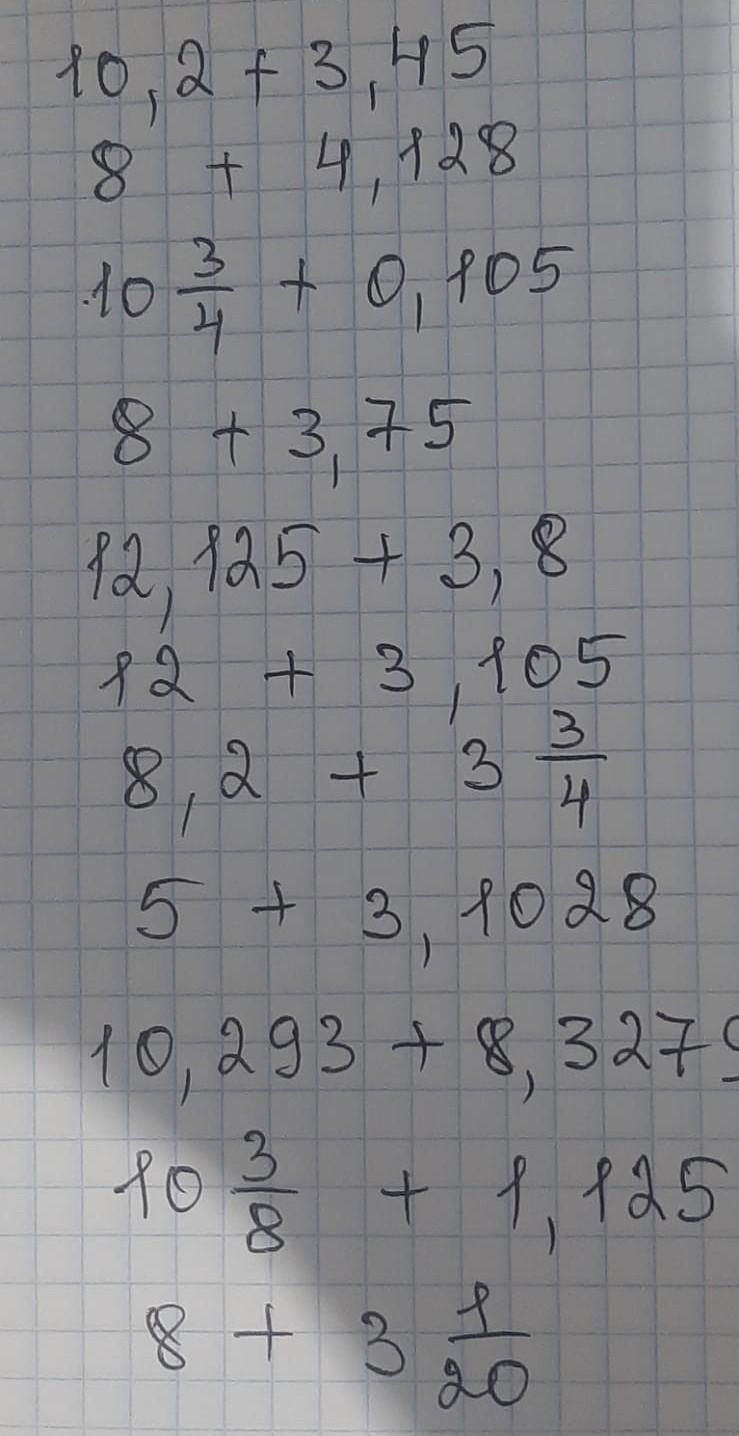 10,2 + 3,45
8 + 4,128
10 3/4 + 0,105
8 + 3,75
12,125 + 3,8
12 + 3,105
8,2 + 3 3/4
5 + 3,1028
10,293 + 8,3279
10 3/8 + 1,125
8 + 3 1/20